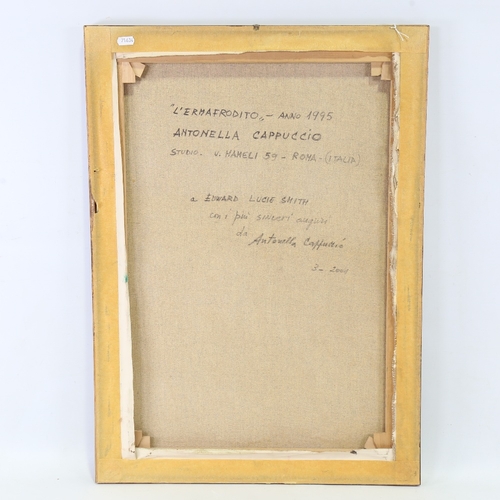 "L'ERMAFRODITO„ - ANNO 1995
ANTONELLA CAPPUCCIO
STUDIO - V. MAMELI 59 - ROMA - (ITALIA)
a EDWARD LUCIE SMITH
con i più sinceri auguri
da
Antonella Cappuccio
3 - 2001